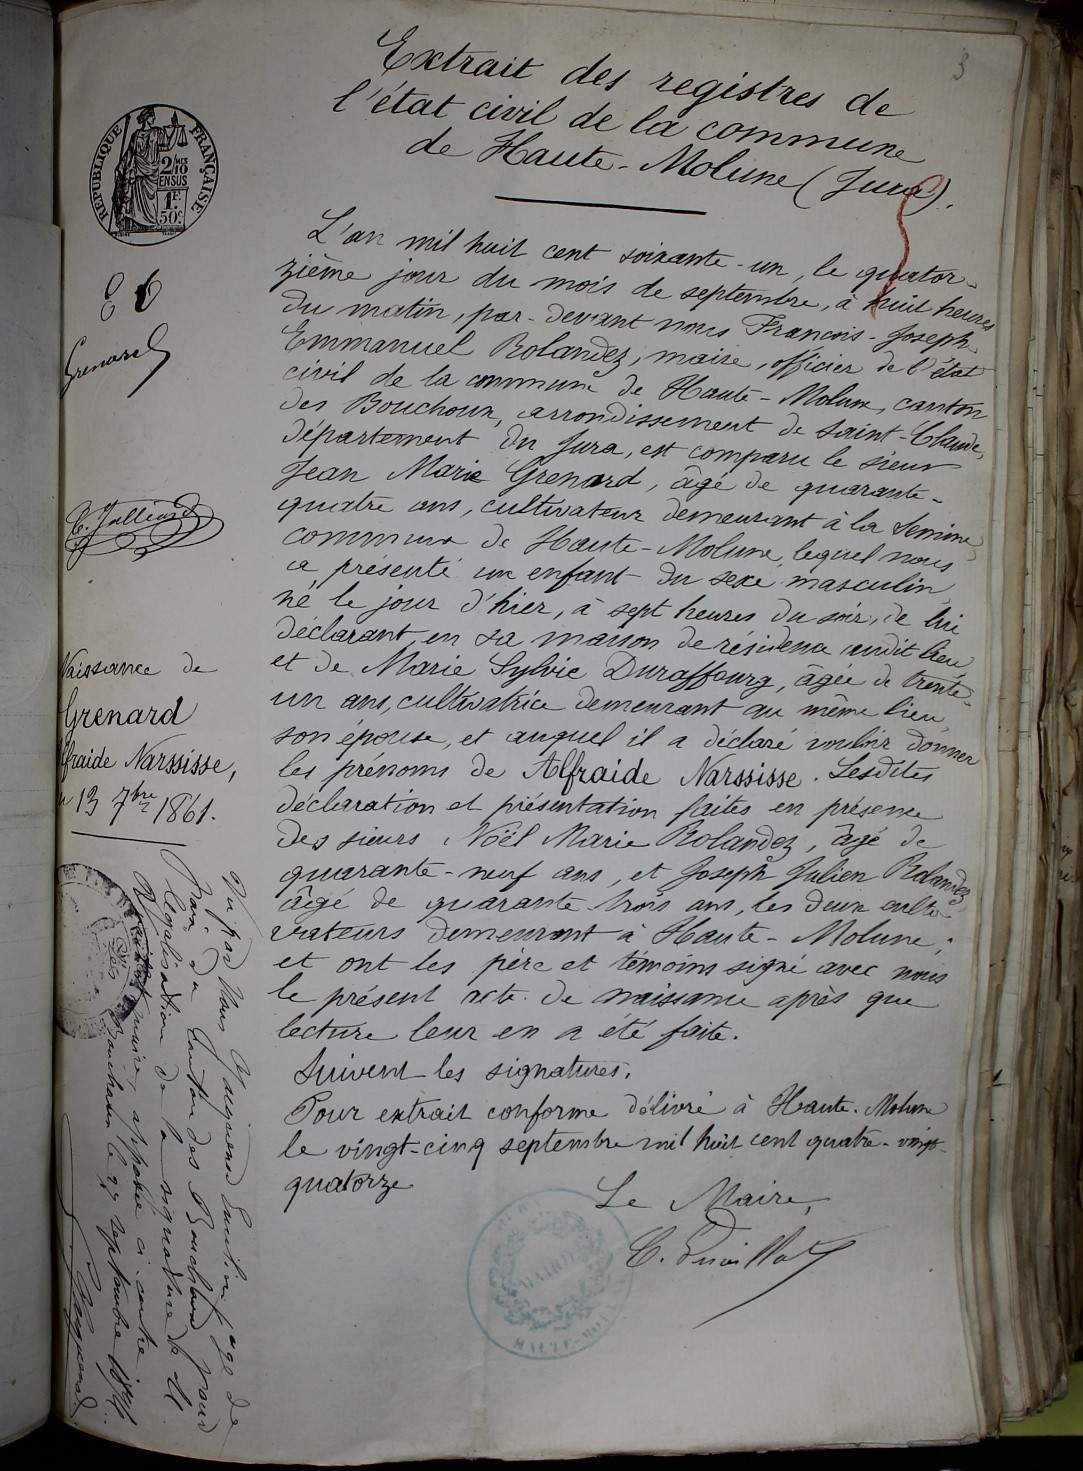 3
Extrait des registres de
l'état civil de la commune
de Haute-Molune (Jura).
RÉPUBLIQUE FRANÇAISE
2/10 MES
EN SUS
1F.
50c.
L'an mil huit cent soixante-un, le quator-
zième jour du mois de septembre, à huit heures
du matin, par-devant nous François-Joseph
Emmanuel Rolandez, maire, officier de l'état
civil de la commune de Haute-Molune, canton
des Bouchoux, arrondissement de Saint-Claude,
département du Jura, est comparu le sieur
Jean Marie Grenard, âgé de quarante-
quatre ans, cultivateur demeurant à la Semine
commune de Haute-Molune, lequel nous
a présenté un enfant du sexe masculin,
né le jour d'hier, à sept heures du soir, de lui
déclarant, en sa maison de résidence audit lieu
et de Marie Sylvie Duraffourg, âgée de trente-
un ans, cultivatrice demeurant au même lieu,
son épouse, et auquel il a déclaré vouloir donner
les prénoms de Alfraide Narssisse. Lesdites
déclaration et présentation faites en présence
des sieurs Noël Marie Rolandez, âgé de
quarante-neuf ans, et Joseph Julien Rolandez,
âgé de quarante-trois ans, les deux culti-
vateurs demeurant à Haute-Molune;
et ont les père et témoins signé avec nous
le présent acte de naissance après que
lecture leur en a été faite.
Suivent les signatures.
Pour extrait conforme délivré à Haute-Molune
le vingt-cinq septembre mil huit cent quatre-vingt-
quatorze
Le Maire,
MAIRIE
Grenard
C. Jalliard
Naissance de
Grenard
lfraide Narssisse,
13 7bre 1861.
Vu par Nous juge de
Paix du Canton des Bouchoux pour
légalisation de la signature de M.
maire, apposée ci-contre
Les Bouchoux le 27 septembre 1894.